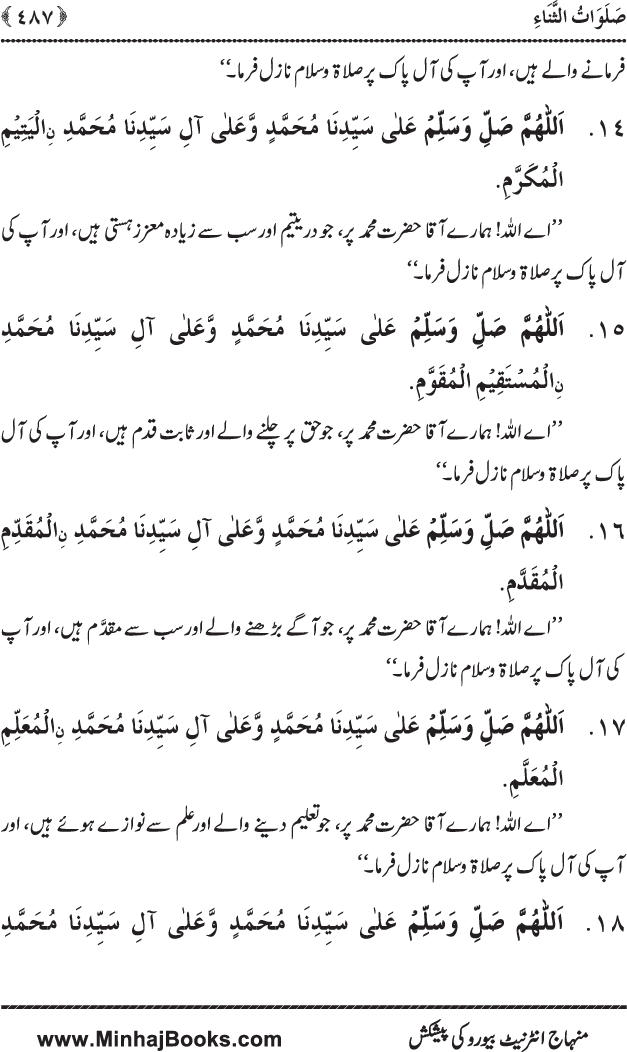 صَلَوَاتُ الثَّنَاءِ ﴿٤٨٧﴾
فرمانے والے ہیں، اور آپ کی آل پاک پر صلاۃ و سلام نازل فرما۔‘‘
١٤. اَللّٰهُمَّ صَلِّ وَسَلِّمْ عَلٰی سَيِّدِنَا مُحَمَّدٍ وَّعَلٰی آلِ سَيِّدِنَا مُحَمَّدِ نِالْيَتِيْمِ
الْمُکَرَّمِ.
’’اے اللہ! ہمارے آقا حضرت محمد پر، جو دریتیم اور سب سے زیادہ معزز ہستی ہیں، اور آپ کی
آل پاک پر صلاۃ و سلام نازل فرما۔‘‘
١٥. اَللّٰهُمَّ صَلِّ وَسَلِّمْ عَلٰی سَيِّدِنَا مُحَمَّدٍ وَّعَلٰی آلِ سَيِّدِنَا مُحَمَّدِ
نِالْمُسْتَقِيْمِ الْمُقَوَّمِ.
’’اے اللہ! ہمارے آقا حضرت محمد پر، جو حق پر چلنے والے اور ثابت قدم ہیں، اور آپ کی آل
پاک پر صلاۃ و سلام نازل فرما۔‘‘
١٦. اَللّٰهُمَّ صَلِّ وَسَلِّمْ عَلٰی سَيِّدِنَا مُحَمَّدٍ وَّعَلٰی آلِ سَيِّدِنَا مُحَمَّدِ نِالْمُقَدِّمِ
الْمُقَدَّمِ.
’’اے اللہ! ہمارے آقا حضرت محمد پر، جو آگے بڑھنے والے اور سب سے مقدَّم ہیں، اور آپ
کی آل پاک پر صلاۃ و سلام نازل فرما۔‘‘
١٧. اَللّٰهُمَّ صَلِّ وَسَلِّمْ عَلٰی سَيِّدِنَا مُحَمَّدٍ وَّعَلٰی آلِ سَيِّدِنَا مُحَمَّدِ نِالْمُعَلِّمِ
الْمُعَلَّمِ.
’’اے اللہ! ہمارے آقا حضرت محمد پر، جو تعلیم دینے والے اور علم سے نوازے ہوئے ہیں، اور
آپ کی آل پاک پر صلاۃ و سلام نازل فرما۔‘‘
١٨. اَللّٰهُمَّ صَلِّ وَسَلِّمْ عَلٰی سَيِّدِنَا مُحَمَّدٍ وَّعَلٰی آلِ سَيِّدِنَا مُحَمَّدِ
منہاج انٹرنیٹ بیورو کی پیشکش www.MinhajBooks.com